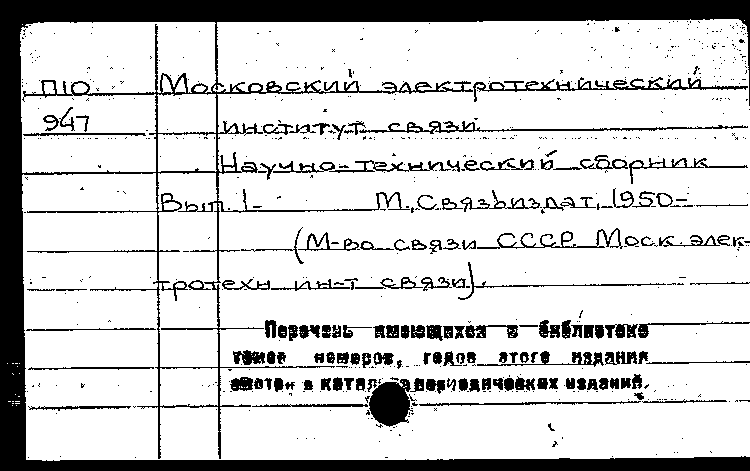 П10 Московский электротехнический
947 институт связи.
Научно-технический сборник
Вып. 1- М., Связьиздат, 1950-
(М-во связи СССР. Моск. элек-
тротехн ин-т связи).
Перечень имеющихся в библиотеке
томов номеров, годов этого издания
смотри в каталоге периодических изданий.